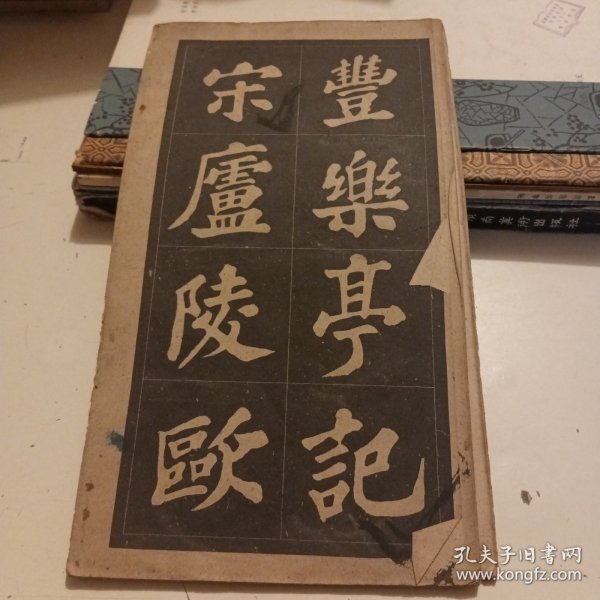 豐樂亭記
宋廬陵歐
美術出版社
孔夫子旧书网
www.kongfz.com